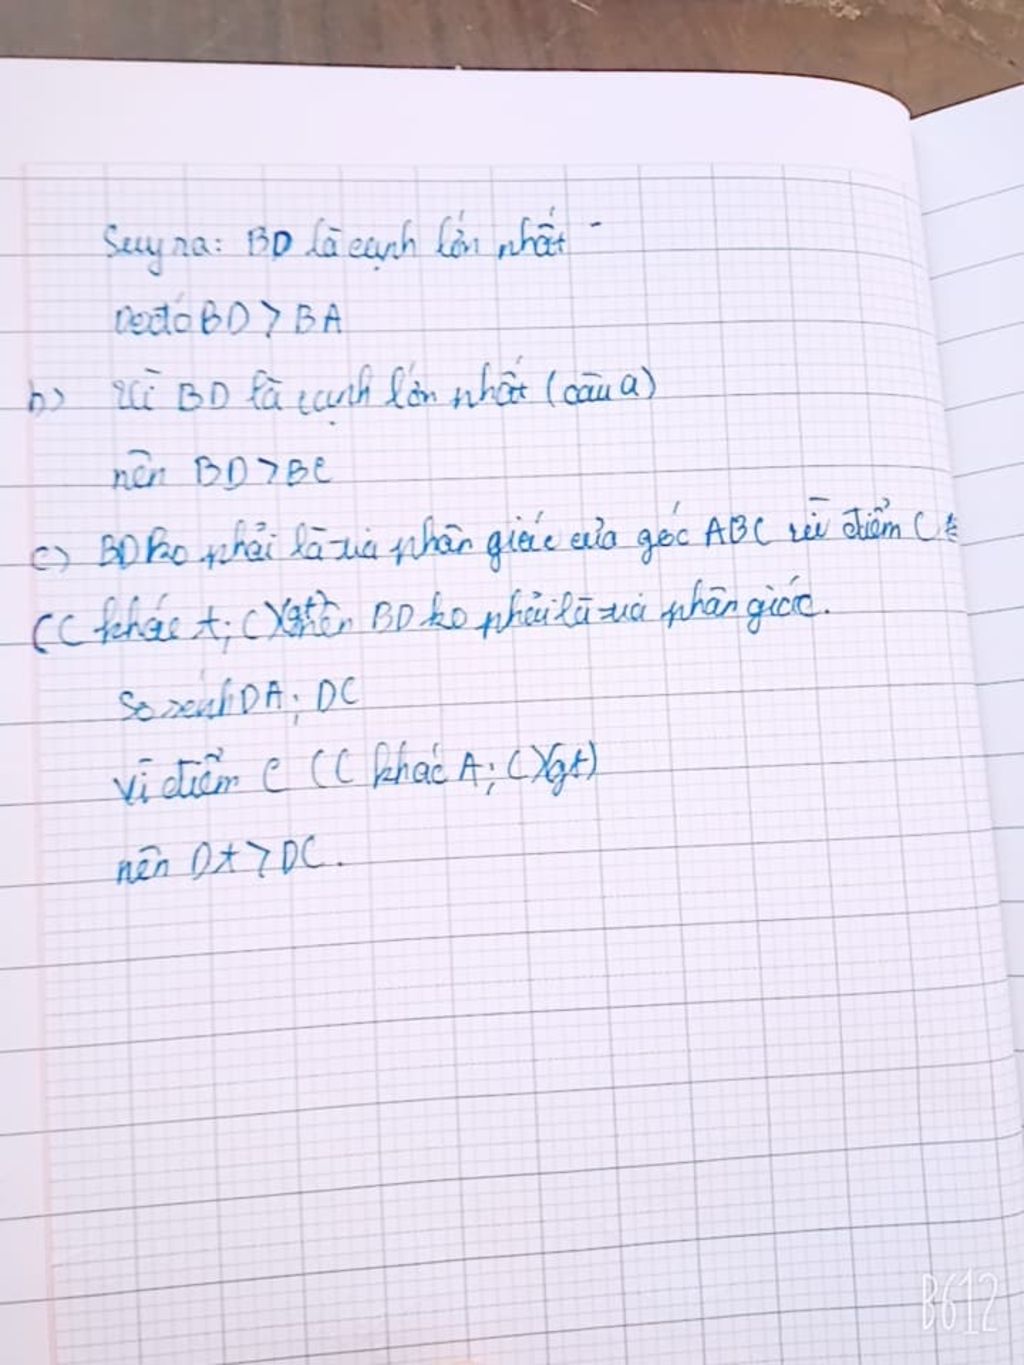 Suy ra: BD là cạnh lớn nhất
Do đó BD > BA
b) Vì BD là cạnh lớn nhất (câu a)
nên BD > BC
c) BD ko phải là tia phân giác của góc ABC vì điểm C
(C khác A; C)(gt) nên BD ko phải là tia phân giác.
So sánh DA; DC
Vì điểm C (C khác A; C)(gt)
nên DA > DC.
B612